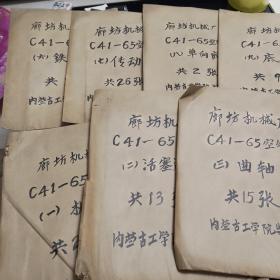 廊坊机械
C41-65空
(六)鉄
共
廊坊机械
C41-65空
(七)传动
共26张
廊坊机械厂
C41-65空
(八)单向
共2张
内蒙古工学
廊坊机
C41-65
(九)底
共9
内蒙古工
廊坊机
C41-6
(一)
共2
廊坊机械
C41-65空
(二)活塞
共13
内蒙古工学
廊坊机械
C41-65空
(三)曲轴
共15张
内蒙古工学院